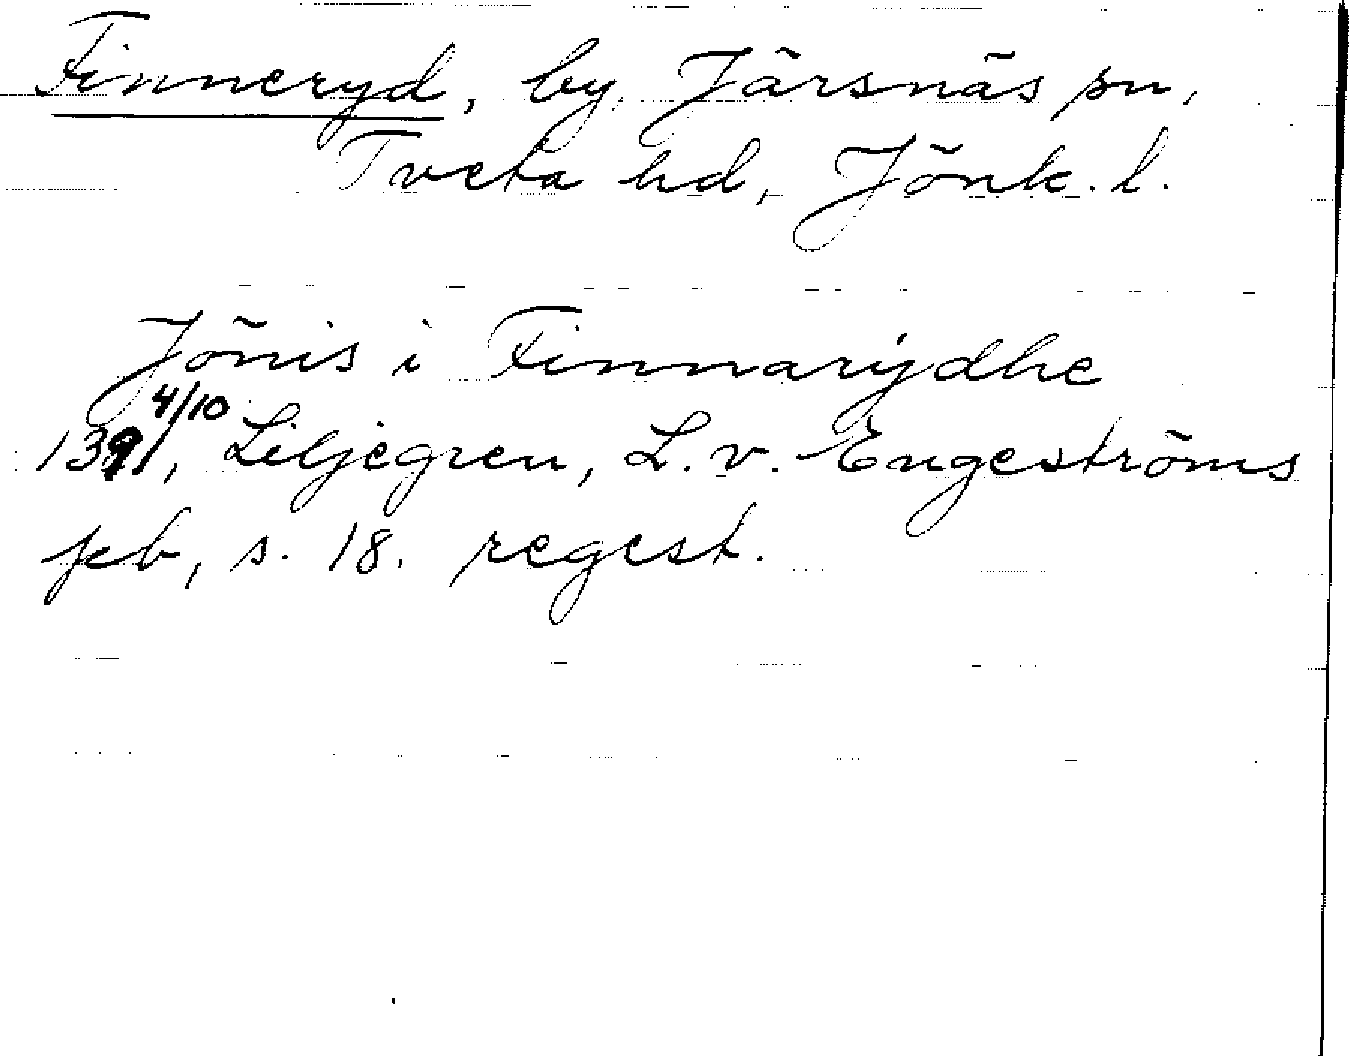 Finneryd, by, Järsnäs sn,
Tveta hd, Jönk. l.
Jönis i Finnarydhe
4/10
1391, Liljegren, L. v. Engeströms
peb, s. 18. regest.